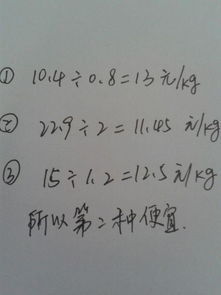 ① 10.4÷0.8=13元/kg
② 22.9÷2=11.45 元/kg
③ 15÷1.2=12.5元/kg
所以第二种便宜.